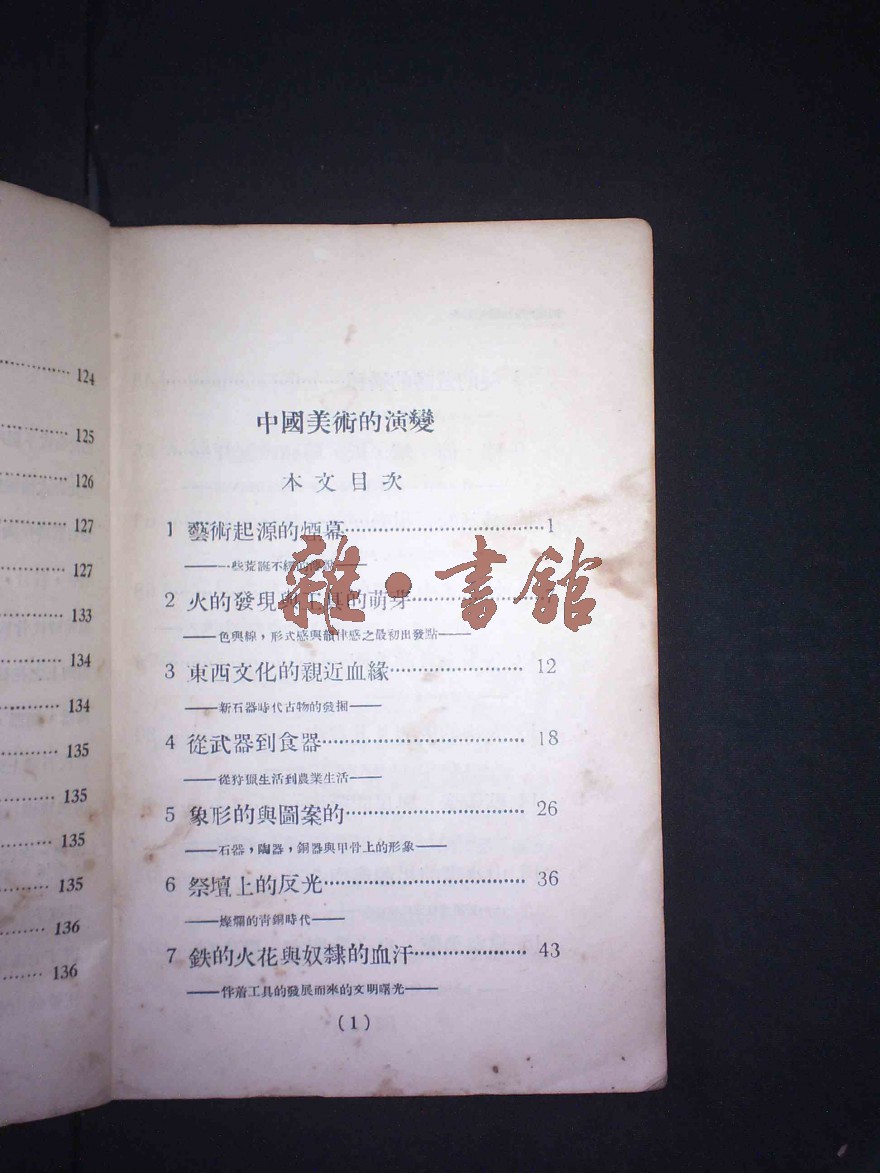 124
125
126
127
127
133
134
134
135
135
135
135
136
136
中國美術的演變
本文目次
1 藝術起源的煙幕 1
——一些荒誕不經的
2 火的發現與工具的萌芽
——色與線，形式感與韻律感之最初出發點——
3 東西文化的親近血緣 12
——新石器時代古物的發掘——
4 從武器到食器 18
——從狩獵生活到農業生活——
5 象形的與圖案的 26
——石器，陶器，銅器與甲骨上的形象——
6 祭壇上的反光 36
——燦爛的青銅時代——
7 鉄的火花與奴隸的血汗 43
——伴着工具的發展而來的文明曙光——
(1)
雜·書館